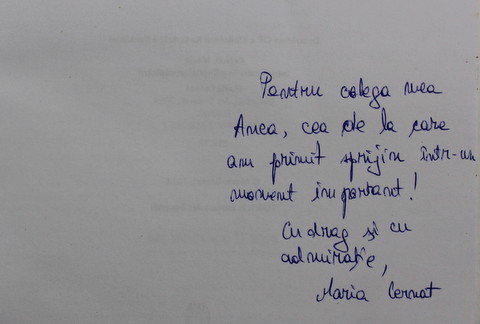 Pentru colega mea
Anca, cea de la care
am primit sprijin într-un
moment important!
Cu drag și cu
admirație,
Maria Cernat